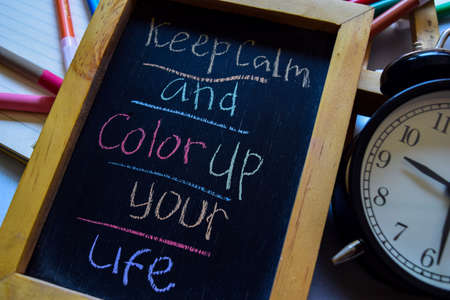 Keep Calm
and
Color up
your
Life
10
9
8
7
6